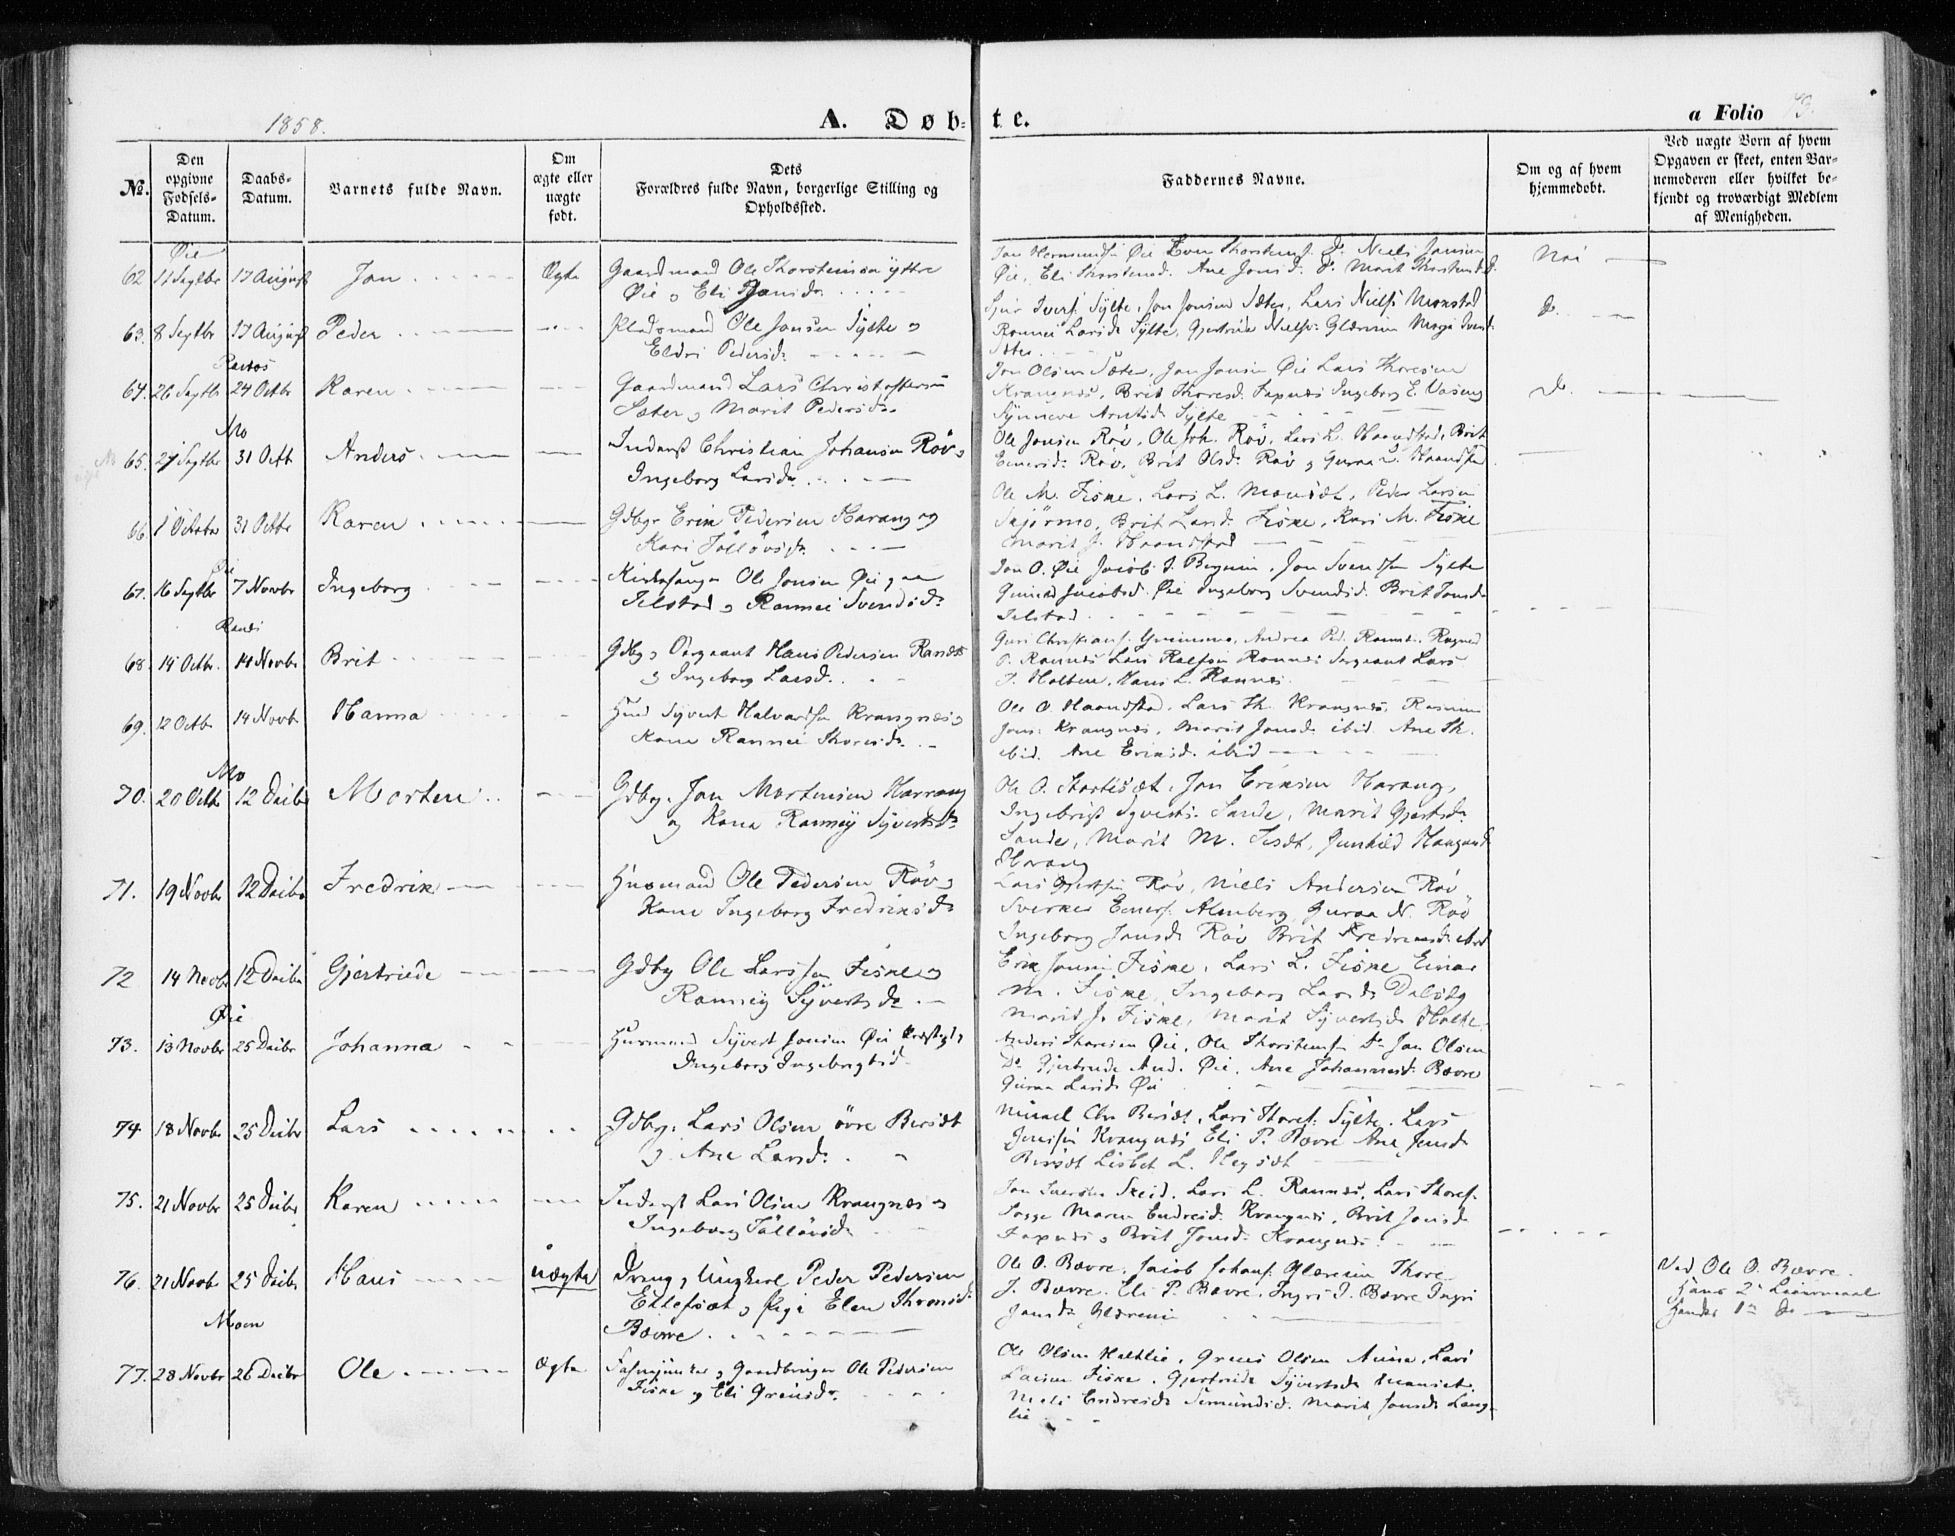 1858.
A. Døb-
te.
a Folio 73.
№.
Den
opgivne
Fødsels-
Datum.
Daabs-
Datum.
Barnets fulde Navn.
Om
ægte eller
uægte
født.
Dets
Forældres fulde Navn, borgerlige Stilling og
Opholdssted.
Faddernes Navne.
Om og af hvem
hjemmedøbt.
Ved uægte Børn af hvem
Opgaven er skeet, enten Bar-
nemoderen eller hvilket be-
kjendt og troværdigt Medlem
af Menigheden.
Øie
62 11 Septbr 17 August Jon Ægte Gaardmand Ole Thorstensen Yttre
Øie og Eli Jonsd.
Øie, Eli Thorstensd. Ane Jonsd. Do Marit Thorstensd.
Nei
63. 8 Septbr 17 August Peder Pladsmand Ole Jonsen Sylte og
Eldri Pedersd.
Sjur Ivers. Sylte, Jon Jonsen Sæter, Lars Niels. Monstad
Rannei Larsd. Sylte, Gjertrud Nielsd. Glærum
Sæter
Do
Ranes
64. 26 Septbr 24 Octbr Karen Gaardmand Lars Christoffersen
Sæter og Marit Pedersd.
Jon Olsen Sæter, Jon Jonsen Øie Lars Thoresen
Krangnæs, Brit Thoresd. Faxnæs Ingeborg E. Vaseng
Synneve Arntsd. Sylte
Do
Mo
65. 27 Septbr 31 Octb Anders Inderst Christian Johansen Røv og
Ingeborg Larsd.
Ole Jonsen Røv, Ole Joh. Røv, Lars L. Haandstad, Brit
Einersd. Røv, Brit Olsd. Røv og Guraa L. Haandstad
66. 1 October 31 Octbr Karen Gdbgr Erik Pedersen Harang og
Kari Tølløvsd.
Ole M. Fiske, Lars L. Monsæt, Peder Larsen
Skjørmo, Brit Larsd. Fiske, Kari M. Fiske
Marit J. Haandstad
Øie
67. 16 Septbr 7 Novbr Ingeborg Kirkesanger Ole Jonsen Øie
Telstad og Rannei Svendsd.
Jon O. Øie Jacob J. Jon Svends. Sylte
Jacobsd. Øie Ingeborg Svendsd. Brit Jonsd.
Telstad
Ranes
68. 14 Octbr. 14 Novbr Brit Gdbg og Sergeant Hans Pedersen Ranes
og Ingeborg Larsd.
P. Rannes Lars Rolfsen Rannes Sergeant Lars
J. Holten, Hans L. Rannes
69. 12 Octbr 14 Novbr Hanna Husm Syvert Halvards. Krangnæs og
Kone Rannei Thoresd.
Ole O. Haandstad, Lars Th. Krangnæs, Rasmus
Jons. Krangnæs, Marit Jonsd. ibid. Ane Th.
ibid. Ane Eriksd. ibid
Mo
70. 20 Octb 12 Decbr Morten Gdbg. Jon Mortensen Harrang
og Kone Rannei Syvertsd.
Ole O. Jon Eriksen Harang,
Ingebrigt Syverts. Sande, Marit Gjertsd.
Sande, Marit M. Gunhild Haagensd.
Harang
71. 19 Novbr 12 Decbr Fredrik Husmand Ole Pedersen Røv og
Kone Ingeborg Fredriksd.
Lars Gjertsen Røv, Niels Andersen Røv
Sverker Einers. Almberg, Guraa N. Røv
Ingeborg Jonsd. Røv Brit Fredriksd. ibid
72 14 Novbr 12 Decbr Gjertrude Gdbg Ole Larssen Fiske og
Rannei Syvertsd.
Erik Jonsen Fiske, Lars L. Fiske Einar
M. Fiske, Ingeborg Larsd. Dalsæg
Marit J. Fiske, Marit Syvertsd. Holte
Øie
73. 13 Novbr 25 Decbr Johanna Husmand Syvert Jonsen Øie og
Ingeborg Ingebrigtsd.
Anders Thoresen Øie, Ole Thorstens. Do Jon Olsen
Do Gjertrude And. Øie, Ane Johannesd. Bævre
Guraa Larsd. Øie
74 18 Novbr 25 Decbr Lars Gdbg. Lars Olsen øvre Bersæt
og Ane Larsd.
Mikael Chr Bersæt, Lars Thores. Sylte. Lars
Jonsen Krangnæs Eli P. Bævre Ane Jonsd.
Bersæt Lisbet L. Hegsæt
75. 21 Novbr 25 Decbr Karen Inderst Lars Olsen Krangnæs og
Ingeborg Tølløvsd.
Jon Iversen Skei. Lars L. Rannes, Lars Thores.
Sogge Maren Endresd. Krangnæs, Brit Jonsd.
Faxnæs og Brit Jonsd. Krangnæs
76. 21 Novbr 25 Decbr Hans uægte Dreng og Ungkarl Peder Pedersen
Settesæt og Pige Elen Thronsd.
Bævre
Ole O. Bævre, Jacob Johans. Glærum Thore
J. Bævre. Eli P. Bævre, Ingri J. Bævre Ingri
Jonsd. Glærem
Ved Ole O. Bævre.
Hans 2d Leiermaal
Hendes 1ste Do
Moen
77. 28 Novbr 26 Decbr Ole Ægte og Gaardbruger Ole Pedersen
Fiske og Eli Grønsd.
Ole Olsen Holtlie, Lars
Larsen Fiske, Gjertrude Syvertsd.
Endresd. Marit Jonsd. Lang-
lie